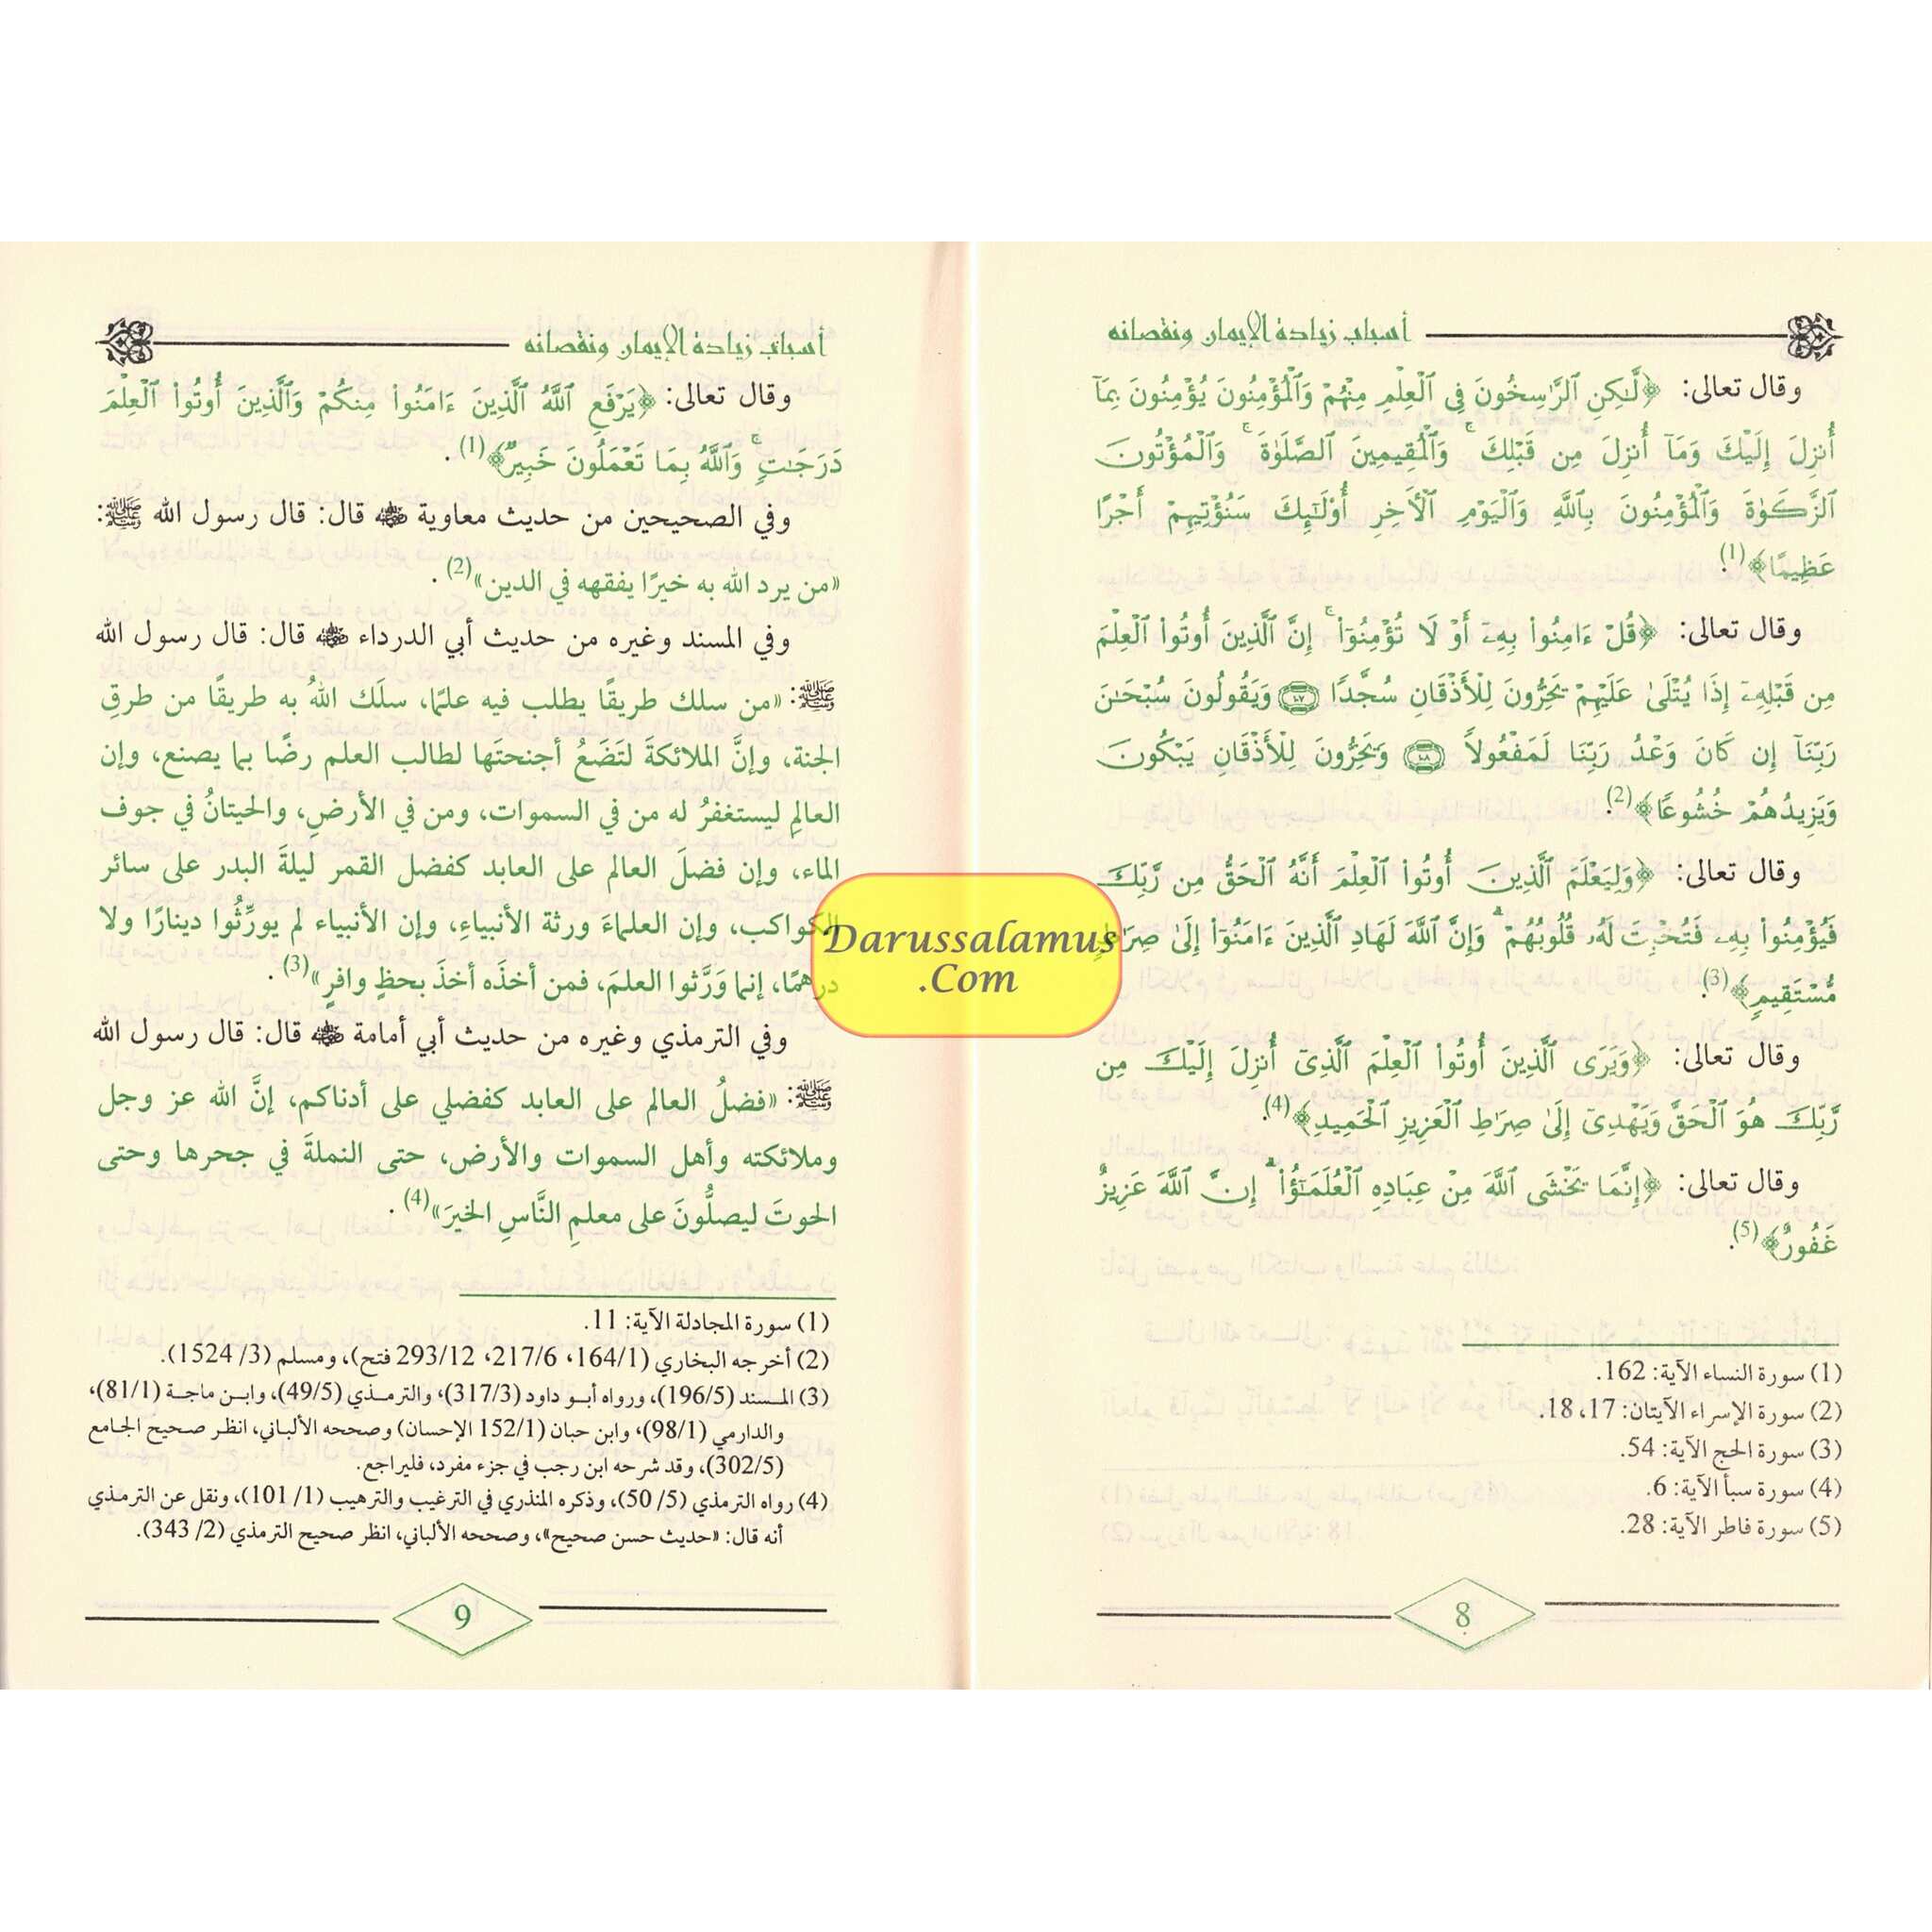 أسباب زيادة الإيمان ونقصانه
وقال تعالى: ﴿لَّـٰكِنِ ٱلرَّٰسِخُونَ فِى ٱلْعِلْمِ مِنْهُمْ وَٱلْمُؤْمِنُونَ يُؤْمِنُونَ بِمَآ
أُنزِلَ إِلَيْكَ وَمَآ أُنزِلَ مِن قَبْلِكَ ۚ وَٱلْمُقِيمِينَ ٱلصَّلَوٰةَ ۚ وَٱلْمُؤْتُونَ
ٱلزَّكَوٰةَ وَٱلْمُؤْمِنُونَ بِٱللَّهِ وَٱلْيَوْمِ ٱلْـَٔاخِرِ أُو۟لَـٰٓئِكَ سَنُؤْتِيهِمْ أَجْرًا
عَظِيمًا﴾(1).
وقال تعالى: ﴿قُلْ ءَامِنُوا۟ بِهِۦٓ أَوْ لَا تُؤْمِنُوٓا۟ ۚ إِنَّ ٱلَّذِينَ أُوتُوا۟ ٱلْعِلْمَ
مِن قَبْلِهِۦٓ إِذَا يُتْلَىٰ عَلَيْهِمْ يَخِرُّونَ لِلْأَذْقَانِ سُجَّدًا ١٠٧ وَيَقُولُونَ سُبْحَـٰنَ
رَبِّنَآ إِن كَانَ وَعْدُ رَبِّنَا لَمَفْعُولًا ١٠٨ وَيَخِرُّونَ لِلْأَذْقَانِ يَبْكُونَ
وَيَزِيدُهُمْ خُشُوعًا﴾(2).
وقال تعالى: ﴿وَلِيَعْلَمَ ٱلَّذِينَ أُوتُوا۟ ٱلْعِلْمَ أَنَّهُ ٱلْحَقُّ مِن رَّبِّكَ
فَيُؤْمِنُوا۟ بِهِۦ فَتُخْبِتَ لَهُۥ قُلُوبُهُمْ ۗ وَإِنَّ ٱللَّهَ لَهَادِ ٱلَّذِينَ ءَامَنُوٓا۟ إِلَىٰ صِرَٰطٍ
مُّسْتَقِيمٍ﴾(3).
وقال تعالى: ﴿وَيَرَى ٱلَّذِينَ أُوتُوا۟ ٱلْعِلْمَ ٱلَّذِىٓ أُنزِلَ إِلَيْكَ مِن
رَّبِّكَ هُوَ ٱلْحَقَّ وَيَهْدِىٓ إِلَىٰ صِرَٰطِ ٱلْعَزِيزِ ٱلْحَمِيدِ﴾(4).
وقال تعالى: ﴿إِنَّمَا يَخْشَى ٱللَّهَ مِنْ عِبَادِهِ ٱلْعُلَمَـٰٓؤُا۟ ۗ إِنَّ ٱللَّهَ عَزِيزٌ
غَفُورٌ﴾(5).
(1) سورة النساء الآية: 162.
(2) سورة الإسراء الآيتان: 17، 18.
(3) سورة الحج الآية: 54.
(4) سورة سبأ الآية: 6.
(5) سورة فاطر الآية: 28.
8
أسباب زيادة الإيمان ونقصانه
وقال تعالى: ﴿يَرْفَعِ ٱللَّهُ ٱلَّذِينَ ءَامَنُوا۟ مِنكُمْ وَٱلَّذِينَ أُوتُوا۟ ٱلْعِلْمَ
دَرَجَـٰتٍ ۚ وَٱللَّهُ بِمَا تَعْمَلُونَ خَبِيرٌ﴾(1).
وفي الصحيحين من حديث معاوية رضي الله عنه قال: قال رسول الله ﷺ:
«من يرد الله به خيرًا يفقهه في الدين»(2).
وفي المسند وغيره من حديث أبي الدرداء رضي الله عنه قال: قال رسول الله
ﷺ: «من سلك طريقًا يطلب فيه علمًا، سلَك اللهُ به طريقًا من طرقِ
الجنة، وإنَّ الملائكةَ لتَضَعُ أجنحتَها لطالب العلم رضًا بما يصنع، وإن
العالمِ ليستغفرُ له من في السموات، ومن في الأرضِ، والحيتانُ في جوف
الماء، وإن فضلَ العالم على العابد كفضل القمر ليلةَ البدر على سائر
الكواكب، وإن العلماءَ ورثة الأنبياءِ، وإن الأنبياء لم يورِّثُوا دينارًا ولا
درهمًا، إنما وَرَّثوا العلمَ، فمن أخذَه أخذَ بحظٍ وافرٍ»(3).
وفي الترمذي وغيره من حديث أبي أمامة رضي الله عنه قال: قال رسول الله
ﷺ: «فضلُ العالم على العابد كفضلي على أدناكم، إنَّ الله عز وجل
وملائكته وأهل السموات والأرض، حتى النملةَ في جحرها وحتى
الحوتَ ليصلُّونَ على معلمِ النَّاسِ الخيرَ»(4).
(1) سورة المجادلة الآية: 11.
(2) أخرجه البخاري (164/1، 217/6، 293/12 فتح)، ومسلم (3/ 1524).
(3) المسند (196/5)، ورواه أبو داود (317/3)، والترمذي (49/5)، وابن ماجة (81/1)،
والدارمي (98/1)، وابن حبان (152/1 الإحسان) وصححه الألباني، انظر صحيح الجامع
(302/5)، وقد شرحه ابن رجب في جزء مفرد، فليراجع.
(4) رواه الترمذي (5/ 50)، وذكره المنذري في الترغيب والترهيب (1/ 101)، ونقل عن الترمذي
أنه قال: «حديث حسن صحيح»، وصححه الألباني، انظر صحيح الترمذي (2/ 343).
9
Darussalamus
.Com